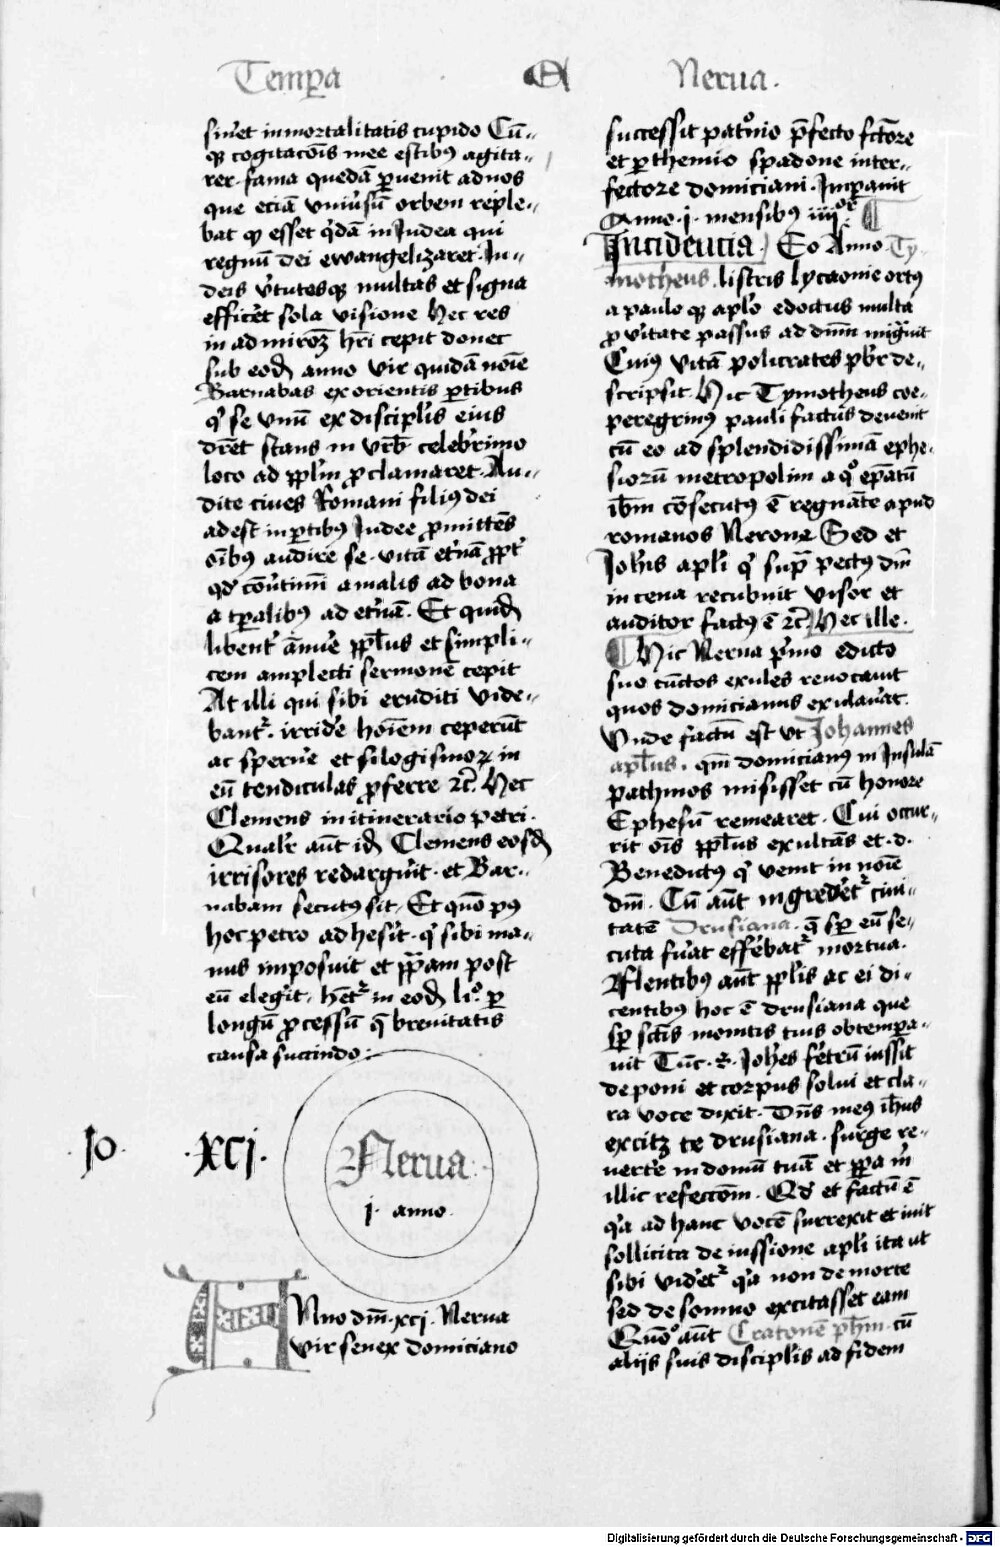 Temp̄a
A
Nerua.
siu̾et inmortalitatis cupido Cū
qꝫ cogitacōis mee estibꝰ agita
rer. fama quedā ꝑuenit ad nos
que eciā vniu̾sū orbem reple
bat ꝙ esset q̾dā in Judea qui
regnū dei ewangelizaret. Ju
deis v̾tutesqꝫ multas et signa
effic̾et sola visione Hec res
in ad miroꝫ hr̄i cepit donec
sub eod̄ anno vir quidā noīe
Barnabas ex orientis ꝑtibus
q̾ se vnū ex discipl̾is eius
dr̄et stans in vrb̄ celeb̾rimo
loco ad ppl̄m ꝓclamaret. Au
dite ciues Romani filiꝰ dei
adest in ꝑtibꝰ Judee ꝓmittēs
oībꝰ audire se. vitā et̾nā
a malis ad bona
a tꝑalibꝰ ad et̾nā. Et quid̄
libent̾ ppl̄us et simpli
cem amplecti sermonē cepit
At illi qui sibi eruditi vide
bant᷑. irrid̾e hoīem ceperūt
ac spern̾e et silogismoꝝ in
eū tendiculas ꝓferre ꝛc̄. Hec
Clemens in itinerario petri.
Qual̾r aūt id̄ Clemens eosd̄
irrisores redarguit. et Bar
nabam secutꝰ sit. Et quōo pꝰ
hoc petro ad hesit. q̾ sibi ma
nus imposuit et pp̄am post
eū elegit. het᷑ in eod̄ li.º ꝑ
longū ꝓcessū qꝫ breuitatis
causa succindo
.10. .xcj.
Nerua.
j. anno.
Anno dn̄i .xcj. Nerua
vir senex domiciano
successit pat̾nio p̄fecto fctōre
et ꝑthemio spadone inter
fectore domiciani. Impauit
Anno. j. mensibꝰ iiijºʳ.
Incidencia. Eo Anno. Ty
motheus. listris lycaonie ortꝰ
a paulo qꝫ apl̾o edoctus multa
ꝓ v̾itate passus ad dn̄m mig̾uit
Cuiꝰ vitā policrates pb̾r de
scripsit. Hic Tymotheus coe
peregrinꝰ pauli factus deuenit
cū eo ad splendidissimā ephe
siorū metropolim a qº ep̄atū
ib̄m cōsecutꝰ ē regnāte apud
romanos Nerone Sed et
Joh̾is apl̾i q̾ sup̄ pectꝰ dn̄i
in cena recubuit visor et
auditor factꝰ ē ꝛc̄ Hec ille.
Hic Nerua p̾mo edicto
suo cūctos exules reuocauit
quos domicianus exulau̾at.
Vnde factū est vt Johannes
apl̄us. qm̄ domicianꝰ in Insulā
pathmos misisset cū honore
Ephesū remearet. Cui occur
rit oīs ppl̄us exultās et .d.
Benedictꝰ q̾ venit in noīe
dn̄i. Cū aūt ingred̾et᷑ ciui
tatē Drusiana. q̄ sꝑ eū se
cuta fu̾at effer̾bat᷑ mortua.
Flentibꝰ aūt ppl̾is ac ei di
centibꝰ hoc ē drusiana que
sꝑ sctīs monitis tuis obtempa
uit Tūc .R. Joh̾es fer̾trū iussit
deponi et corpus solui et cla
ra voce dixit. Dn̄s meꝰ ih̄us
excitꝫ te drusiana. surge re
uert̾e in domū tuā et p̄pa m̾
illic refeccōm. Qd̾ et factū ē
q̾a ad hanc vocē surrexit et iuit
sollicita de iussione apl̾i ita ut
sibi vid̾et᷑ q̾a non de morte
sed de somno excitasset eam
Quōo aūt Cratonē ph̄m. cū
aliis suis discipl̾is ad fidem
Digitalisierung gefördert durch die Deutsche Forschungsgemeinschaft - DFG